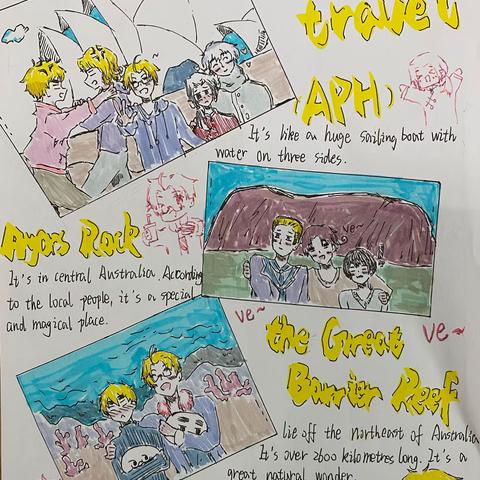 travel
(APH)
It's like an huge sailing boat with
water on three sides.
Ayors Rock
It's in central Australia. According
to the local people, it's a special
and magical place.
ve~
ve~
ve~
the Great
Barrier Reef
lie off the northeast of Australia
It's over 2600 kilometres long. It's a
great natural wonder.